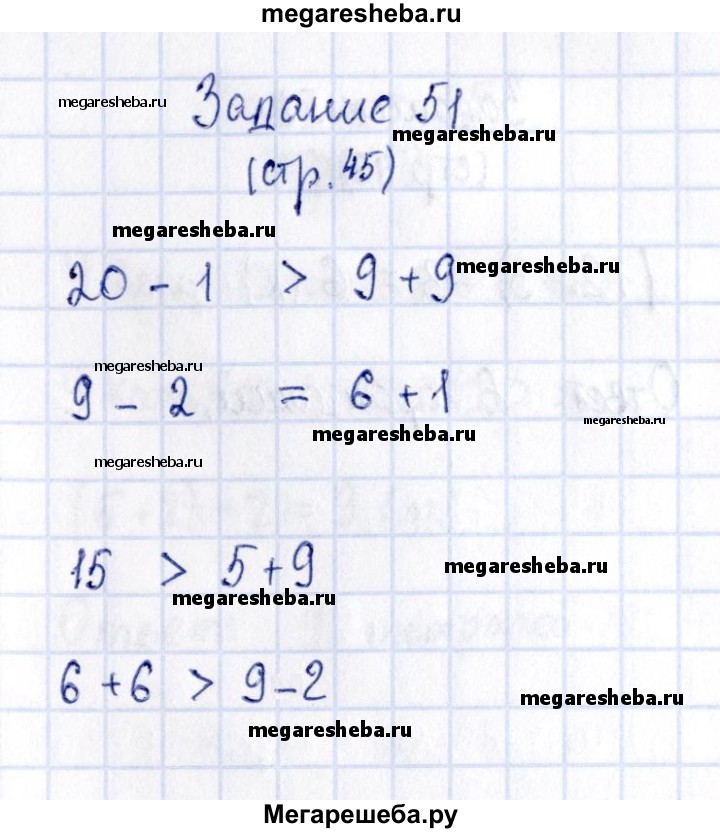 megaresheba.ru
megaresheba.ru
Задание 51
megaresheba.ru
(стр. 45)
megaresheba.ru
20 - 1 > 9 + 9
megaresheba.ru
megaresheba.ru
9 - 2 = 6 + 1
megaresheba.ru
megaresheba.ru
megaresheba.ru
15 > 5 + 9
megaresheba.ru
megaresheba.ru
6 + 6 > 9 - 2
megaresheba.ru
megaresheba.ru
Мегарешеба.ру